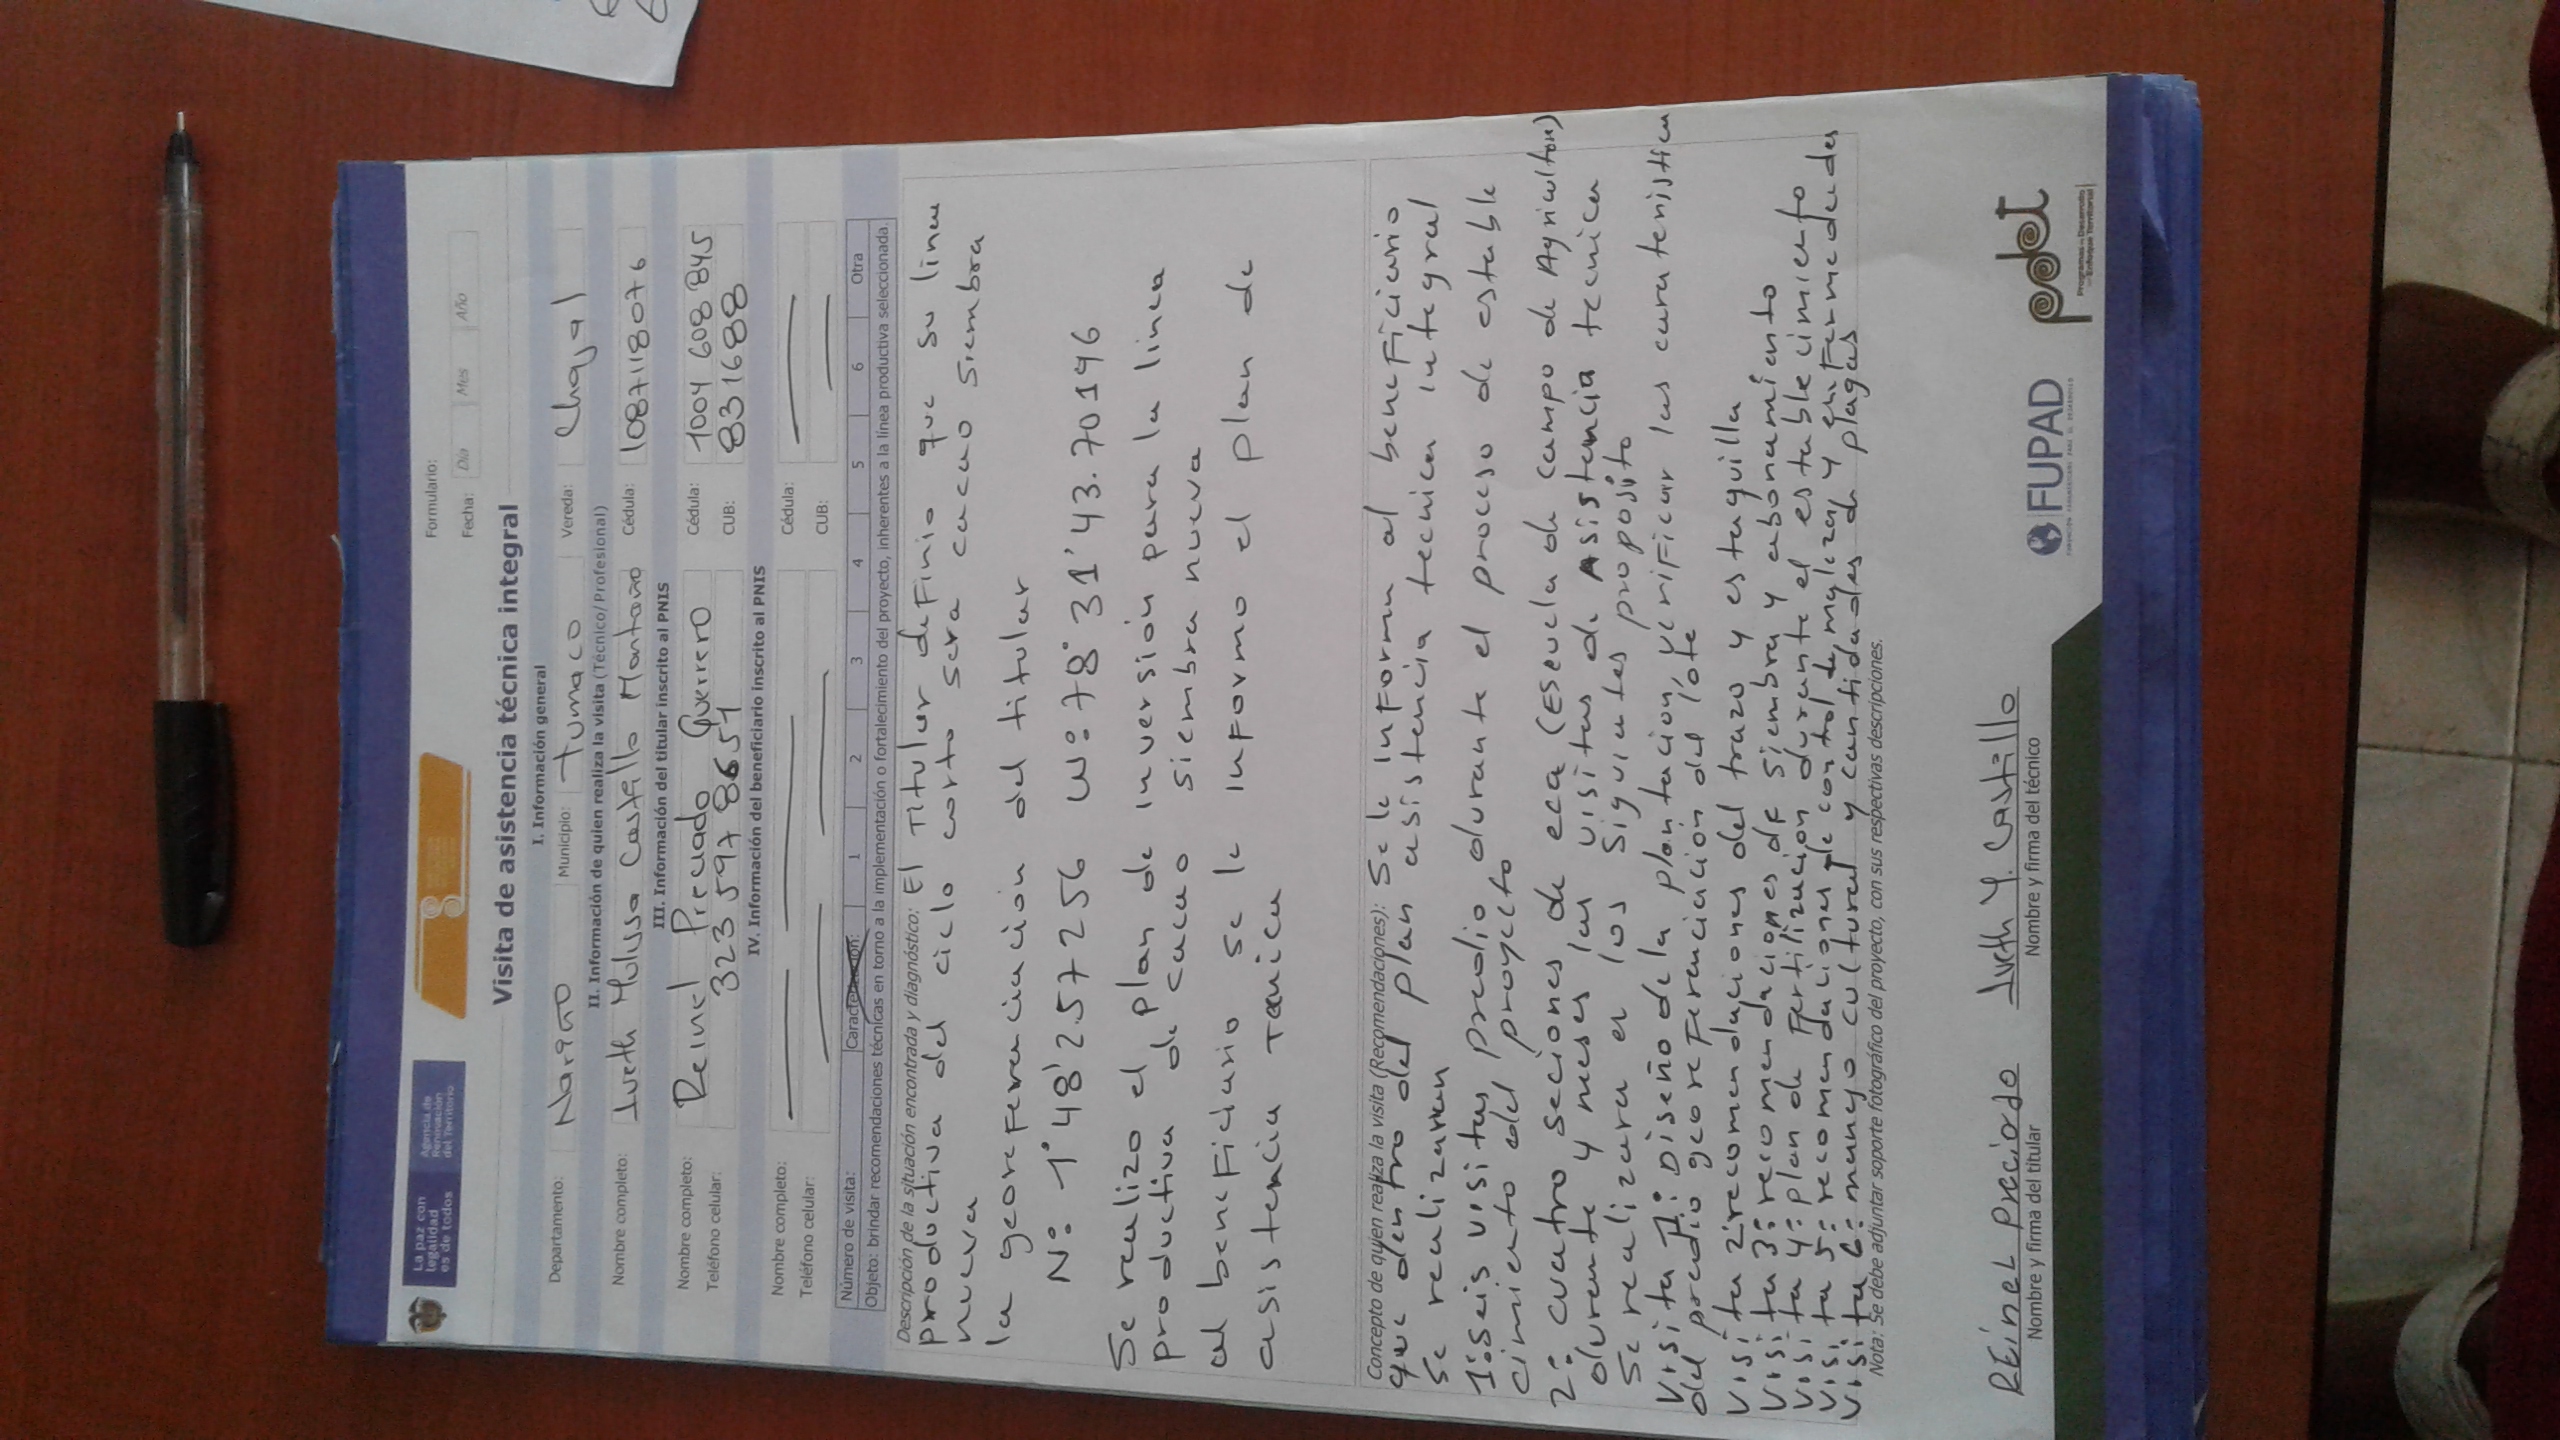 La paz con
legalidad
es de todos
Agencia de
Renovación
del Territorio
Formulario:
Fecha: Día Mes Año
Visita de asistencia técnica integral
I. Información general
Departamento: Nariño Municipio: Tumaco Vereda: Chaval
II. Información de quien realiza la visita (Técnico/Profesional)
Nombre completo: Iveth Castillo Montaño Cédula: 1087118076
III. Información del titular inscrito al PNIS
Nombre completo: Reinel Preciado Querrero Cédula: 1004 608 845
Teléfono celular: 323 597 8657 CUB: 831688
IV. Información del beneficiario inscrito al PNIS
Nombre completo: Cédula:
Teléfono celular: CUB:
Número de visita: Caracterización: 1 2 3 4 5 6 Otra
Objeto: brindar recomendaciones técnicas en torno a la implementación o fortalecimiento del proyecto, inherentes a la línea productiva seleccionada.
Descripción de la situación encontrada y diagnóstico: El Titular definio que su linea
productiva del ciclo corto sera cacao siembra
nueva
la georeferenciación del titular
N: 1° 48' 2.57256 W: 78° 31' 43.70196
Se realizo el plan de inversión para la linea
productiva de cacao siembra nueva
al beneficiario se le informo el plan de
asistencia Tecnica
Concepto de quien realiza la visita (Recomendaciones): Se le informa al beneficiario
que dentro del plan asistencia tecnica integral
se realizaran
1: Seis visitas predio durante el proceso de estable
cimiento del proyecto
2: cuatro seciones de eca (Escuela de campo de Agricultores)
durente y meses las visitas de Asistencia tecnica
Se realizara en los siguientes proposito
Visita 1: Diseño de la plantacion, verificar las caracteristica
del predio georeferenciación del lote
Visita 2: recomendaciones del trazo y estaquilla
Visita 3: recomendaciones de siembra y abonamiento
Visita 4: plan de fertilización durante el establecimiento
Visita 5: recomendaciones de control de malezas y enfermedades
Visita 6: manejo cultural y cantidades de plagas
Nota: Se debe adjuntar soporte fotográfico del proyecto, con sus respectivas descripciones.
REinel preciado Iveth Y. Castillo
Nombre y firma del titular Nombre y firma del técnico
FUPAD
pdet
Programas de Desarrollo
con Enfoque Territorial